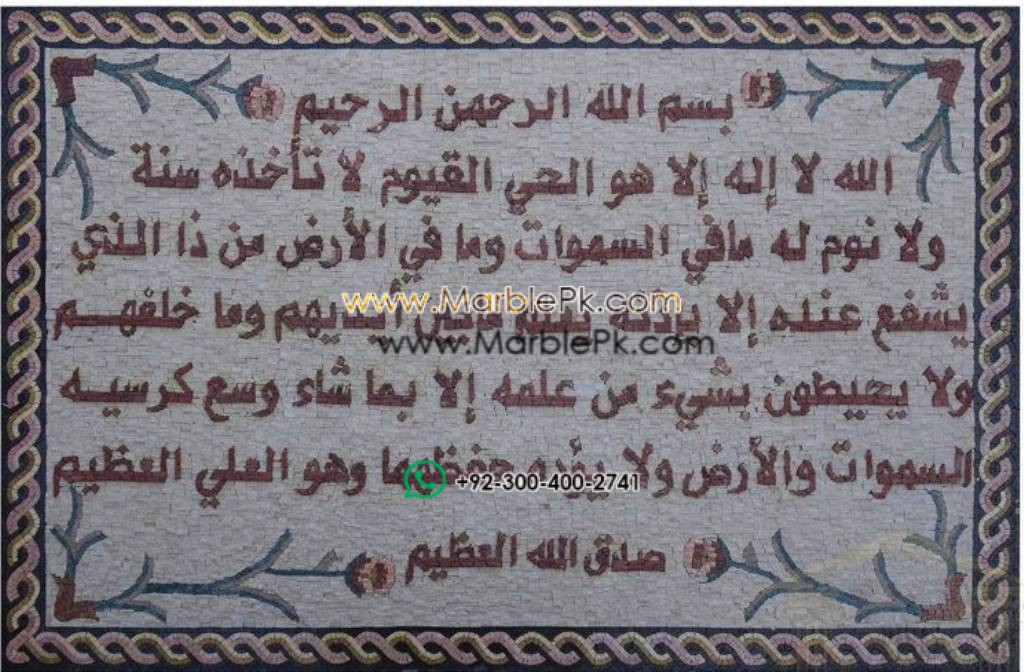 بسم الله الرحمن الرحيم
الله لا إله إلا هو الحي القيوم لا تأخذه سنة
ولا نوم له مافي السموات وما في الأرض من ذا الذي
يشفع عنده إلا بإذنه أيديهم وما خلفهم
www.MarblePk.com
www.MarblePk.com
ولا يحيطون بشيء من علمه إلا بما شاء وسع كرسيه
السموات والأرض ولا يؤده حفظهما وهو العلي العظيم
+92-300-400-2741
صدق الله العظيم